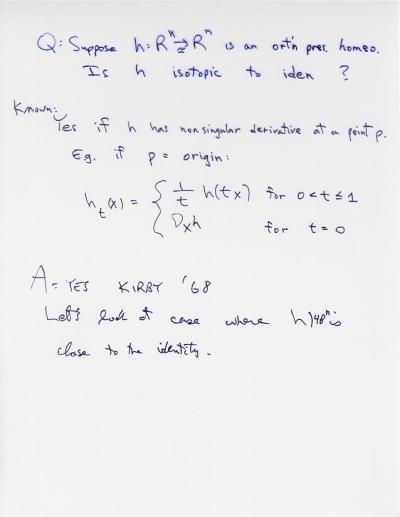 Q: Suppose h: Rⁿ ⥲ Rⁿ is an ort'n pres. homeo.
Is h isotopic to iden ?
Known:
Yes if h has nonsingular derivative at a point p.
E.g. if p = origin:
hₜ(x) = { 1/t h(tx) for 0<t≤1
Dₓh for t=0
A = YES KIRBY '68
Let's look at case where h|4Bⁿ is
close to the identity.